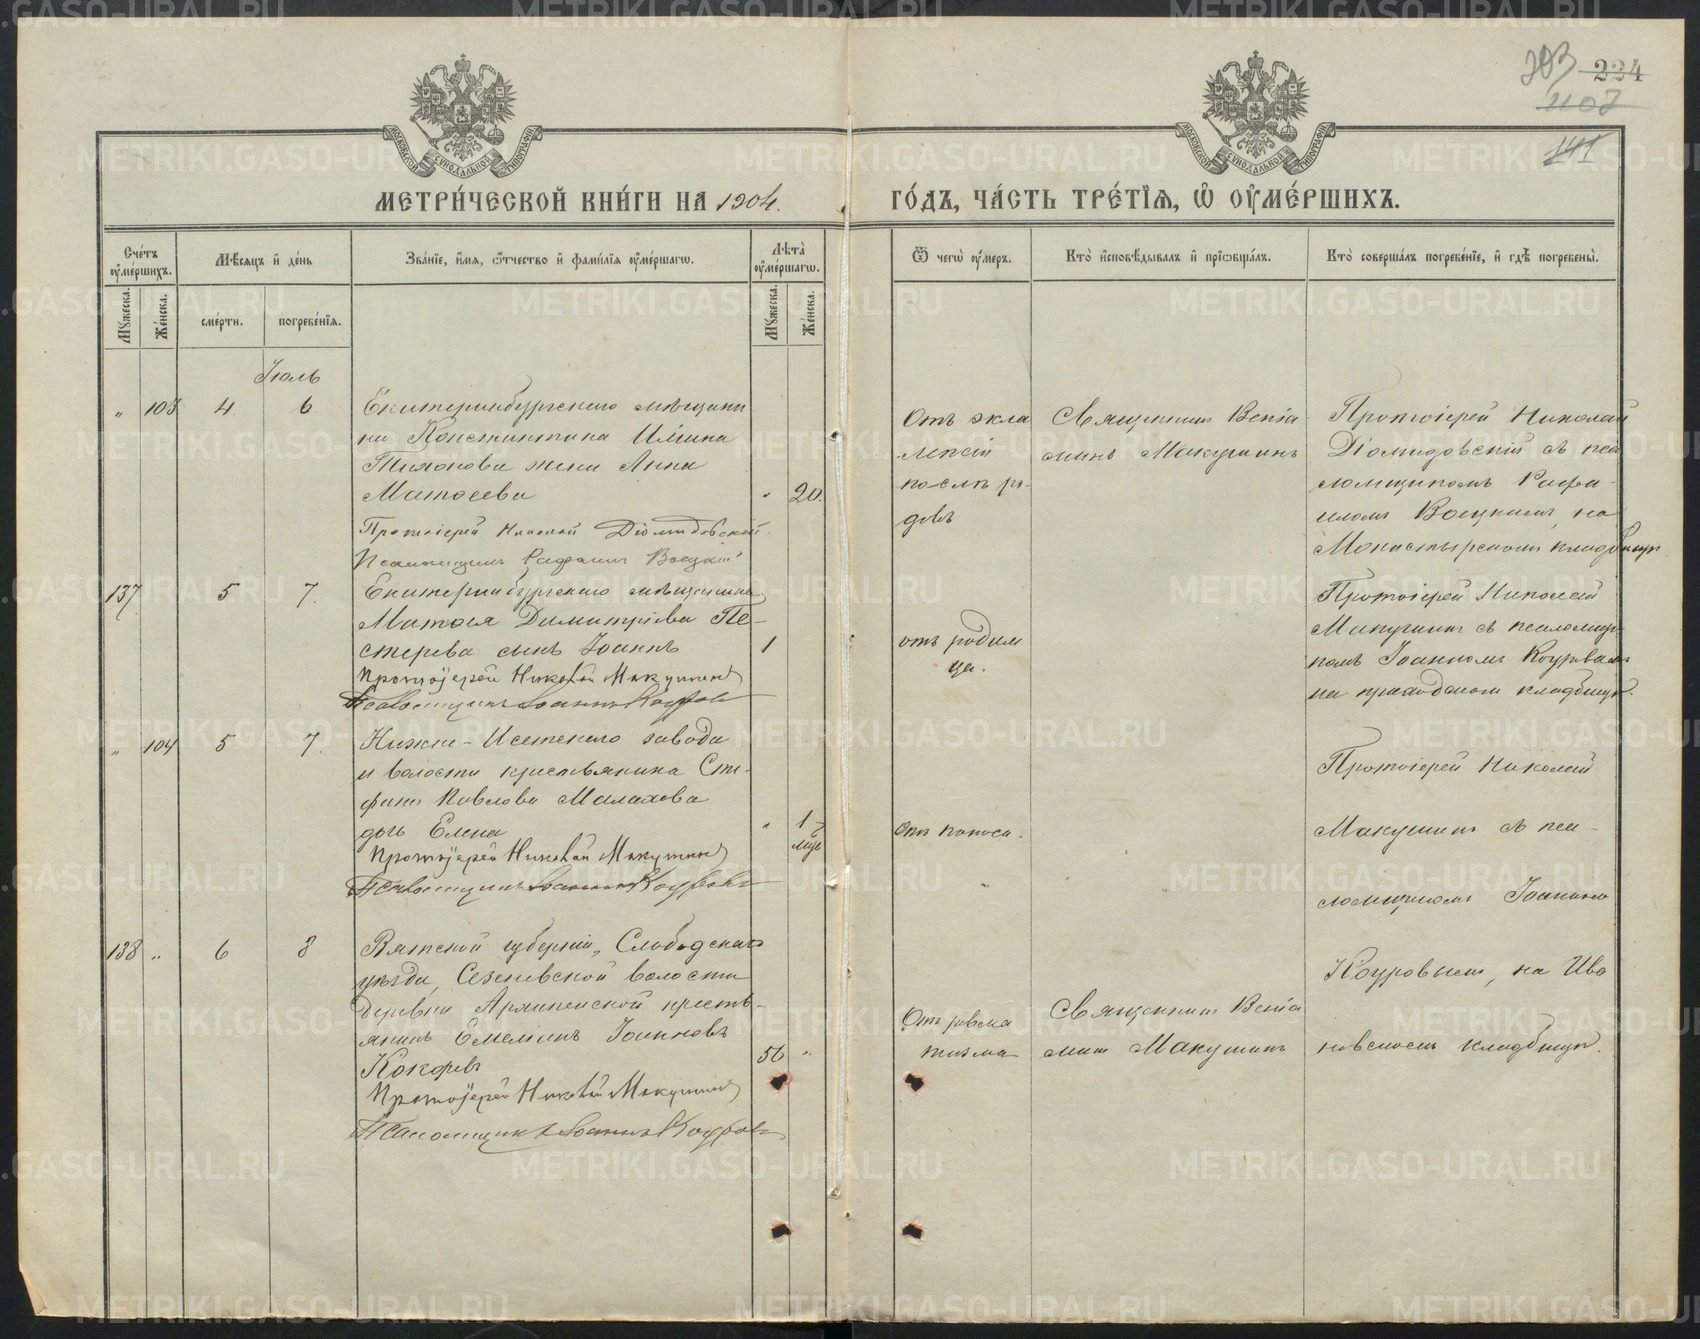 224
141
МЕТРИ́ЧЕСКОЙ КНИ́ГИ НА 1904.
ГО́ДЪ, ЧА́СТЬ ТРЕ́ТЇѦ, Ѡ҆ ОУ҆МЕ́РШИХЪ.
Сче́тъ оу҆ме́ршихъ.
Мѣ́сѧцъ и҆ де́нь
Зва́нїе, и҆́мѧ, ѻ҆́тчество и҆ фами́лїѧ оу҆ме́ршагѡ.
Лѣ́та оу҆ме́ршагѡ.
Ѿ чегѡ̀ оу҆́меръ.
Кто̀ и҆сповѣ́дывалъ и҆ прїѡбща́лъ.
Кто̀ соверша́лъ погребе́нїе, и҆ гдѣ̀ погребены̀.
Мꙋ́жеска.
Же́нска.
сме́рти.
погребе́нїѧ.
Мꙋ́жеска.
Же́нска.
Іюль
" 103 4 6
Екатеринбургскаго мѣщани
на Константина Ильина
Тихонова жена Анна
Матѳеева
" 20.
Протоіерей Николай Діомидовскій
Псаломщикъ Рафаилъ
Отъ экла
мпсіи
послѣ ро
довъ
Священникъ Веніа
минъ Макушинъ
Протоіерей Николай
Діомидовскій съ пса
ломщикомъ Рафа
иломъ на
Монастырскомъ кладбищѣ
137 5 7.
Екатеринбургскаго мѣщанина
Матѳея Димитріева Пе-
стерева сынъ Іоаннъ
1
Протоіерей Николай Макушинъ
Псаломщикъ Іоаннъ Коуровъ
отъ родим
ца.
Протоіерей Николай
Макушинъ съ псаломщи
комъ Іоанномъ Коуровымъ
на приходскомъ кладбищѣ.
" 104 5 7.
Нижне-Исетскаго завода
и волости крестьянина Сте-
фана Павлова Малахова
дочь Елена
" 1
Протоіерей Николай Макушинъ
Псаломщикъ Іоаннъ Коуровъ
Отъ поноса.
Протоіерей Николай
Макушинъ съ пса-
ломщикомъ Іоанномъ
Коуровымъ, на Ива
новскомъ кладбищѣ.
138 " 6 8
Вятской губерніи, Слободскаго
уѣзда, Сезеневской волости
деревни крестъ-
янинъ Емеліанъ Іоанновъ
Кокоревъ
56 "
Протоіерей Николай Макушинъ
Псаломщикъ Іоаннъ Коуровъ
Отъ ревма
тизма
Священникъ Веніа
минъ Макушинъ